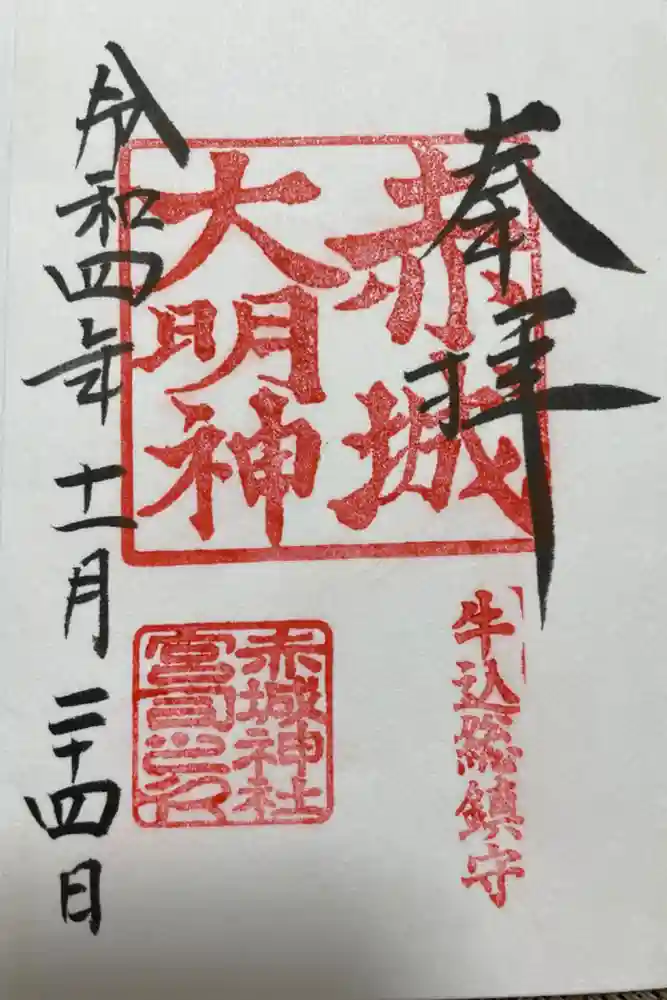 奉拝
赤城
大明神
牛込総鎮守
赤城神社
宮司之印
令和四年十一月二十四日